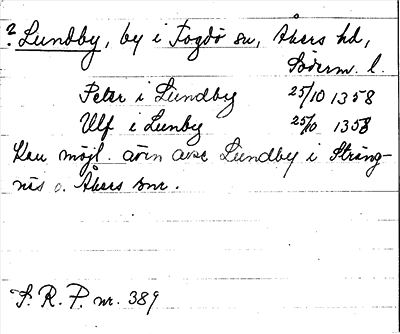 ? Lundby, by i Fogdö sn, Åkers hd,
Söderm. l.
Peter i Lundby 25/10 1358
Ulf i Lunby 25/10 1358
Kan möjl. även avse Lundby i Sträng-
näs o. Åkers snr.
S. R. P. nr. 389